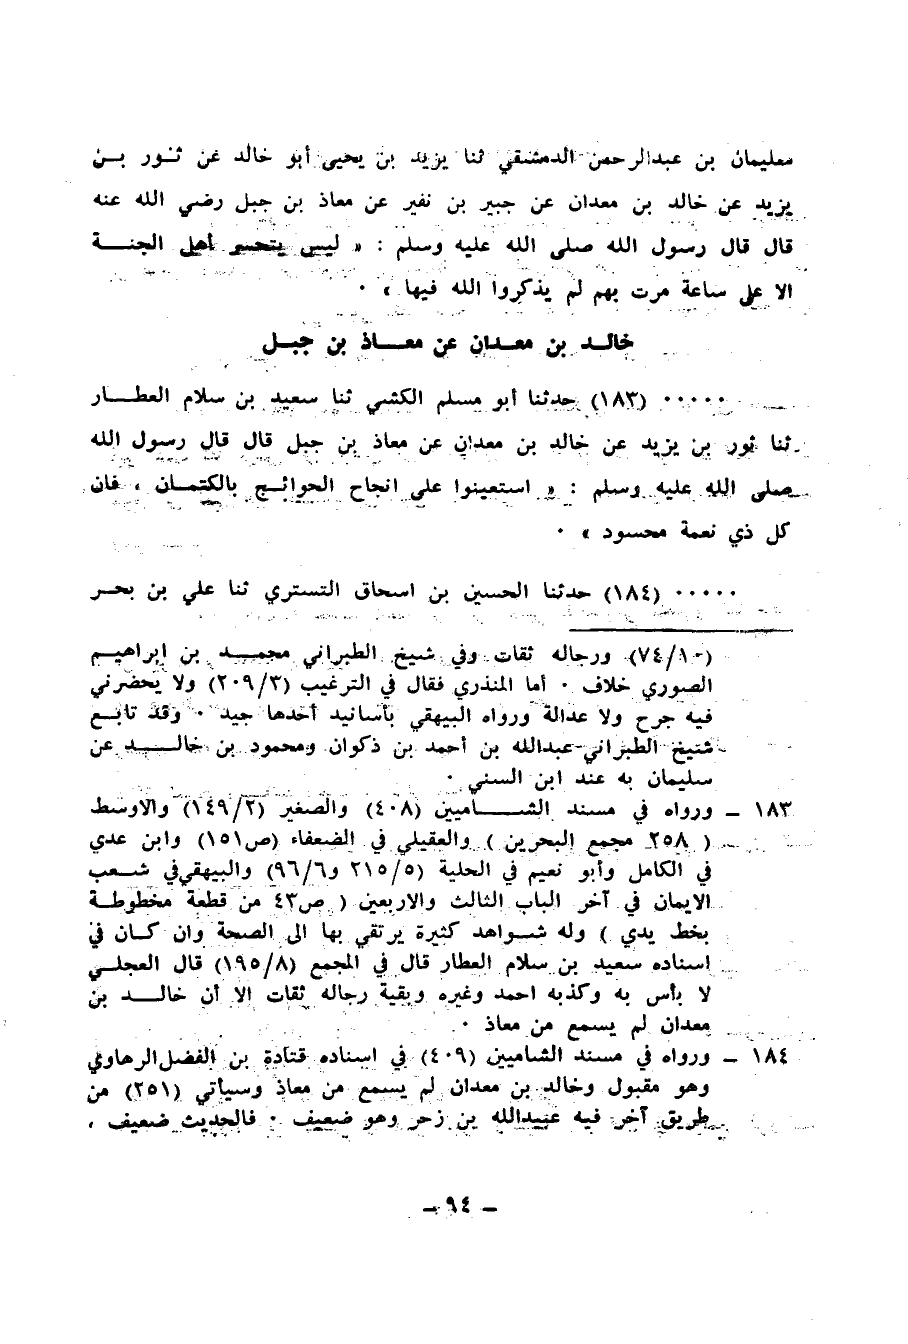 سليمان بن عبدالرحمن الدمشقي ثنا يزيد بن يحيى أبو خالد عن ثـور بـن
يزيد عن خالد بن معدان عن جبير بن نفير عن معاذ بن جبل رضي الله عنه
قال قال رسول الله صلى الله عليه وسلم : « ليس يتحسر أهل الجنـــة
الا على ساعة مرت بهم لم يذكروا الله فيها » ٠
خالـد بن معـدان عن معـــاذ بن جبـل
٠٠٠٠٠ (١٨٣) حدثنا أبو مسلم الكشي ثنا سعيد بن سلام العطـــار
ثنا ثور بن يزيد عن خالد بن معدان عن معاذ بن جبل قال قال رسول الله
صلى الله عليه وسلم : « استعينوا على انجاح الحوائـج بالكتمـان ، فان
كل ذي نعمة محسود » ٠
٠٠٠٠٠ (١٨٤) حدثنا الحسين بن اسحاق التستري ثنا علي بن بحـر
(٧٤/١٠) ورجاله ثقات وفي شيخ الطبراني محمـــد بن ابراهيـم
الصوري خلاف ٠ أما المنذري فقال في الترغيب (٢٠٩/٣) ولا يحضرني
فيه جرح ولا عدالة ورواه البيهقي بأسانيد أحدها جيد ٠ وقد تابـع
شيخ الطبراني عبدالله بن أحمد بن ذكوان ومحمود بن خالـــد عن
سليمان به عند ابن السني ٠
١٨٣ ــ ورواه في مسند الشـــاميين (٤٠٨) والصغير (١٤٩/٢) والاوسط
( ٢٥٨ مجمع البحرين ) والعقيلي في الضعفاء (ص١٥١) وابن عدي
في الكامل وأبو نعيم في الحلية (٢١٥/٥ و٩٦/٦) والبيهقي في شـعب
الايمان في آخر الباب الثالث والاربعين ( ص٤٣ من قطعة مخطوطـة
بخط يدي ) وله شـواهد كثيرة يرتقي بها الى الصحة وان كـان في
اسناده سعيد بن سلام العطار قال في المجمع (١٩٥/٨) قال العجلـي
لا بأس به وكذبه احمد وغيره وبقية رجاله ثقات الا أن خالـــد بن
معدان لم يسمع من معاذ ٠
١٨٤ ــ ورواه في مسند الشاميين (٤٠٩) في اسناده قتادة بن الفضل الرهاوي
وهو مقبول وخالد بن معدان لم يسمع من معاذ وسيأتي (٢٥١) من
طريق آخر فيه عبيدالله بن زحر وهو ضعيف ٠ فالحديث ضعيف ،
ــ ٩٤ ــ